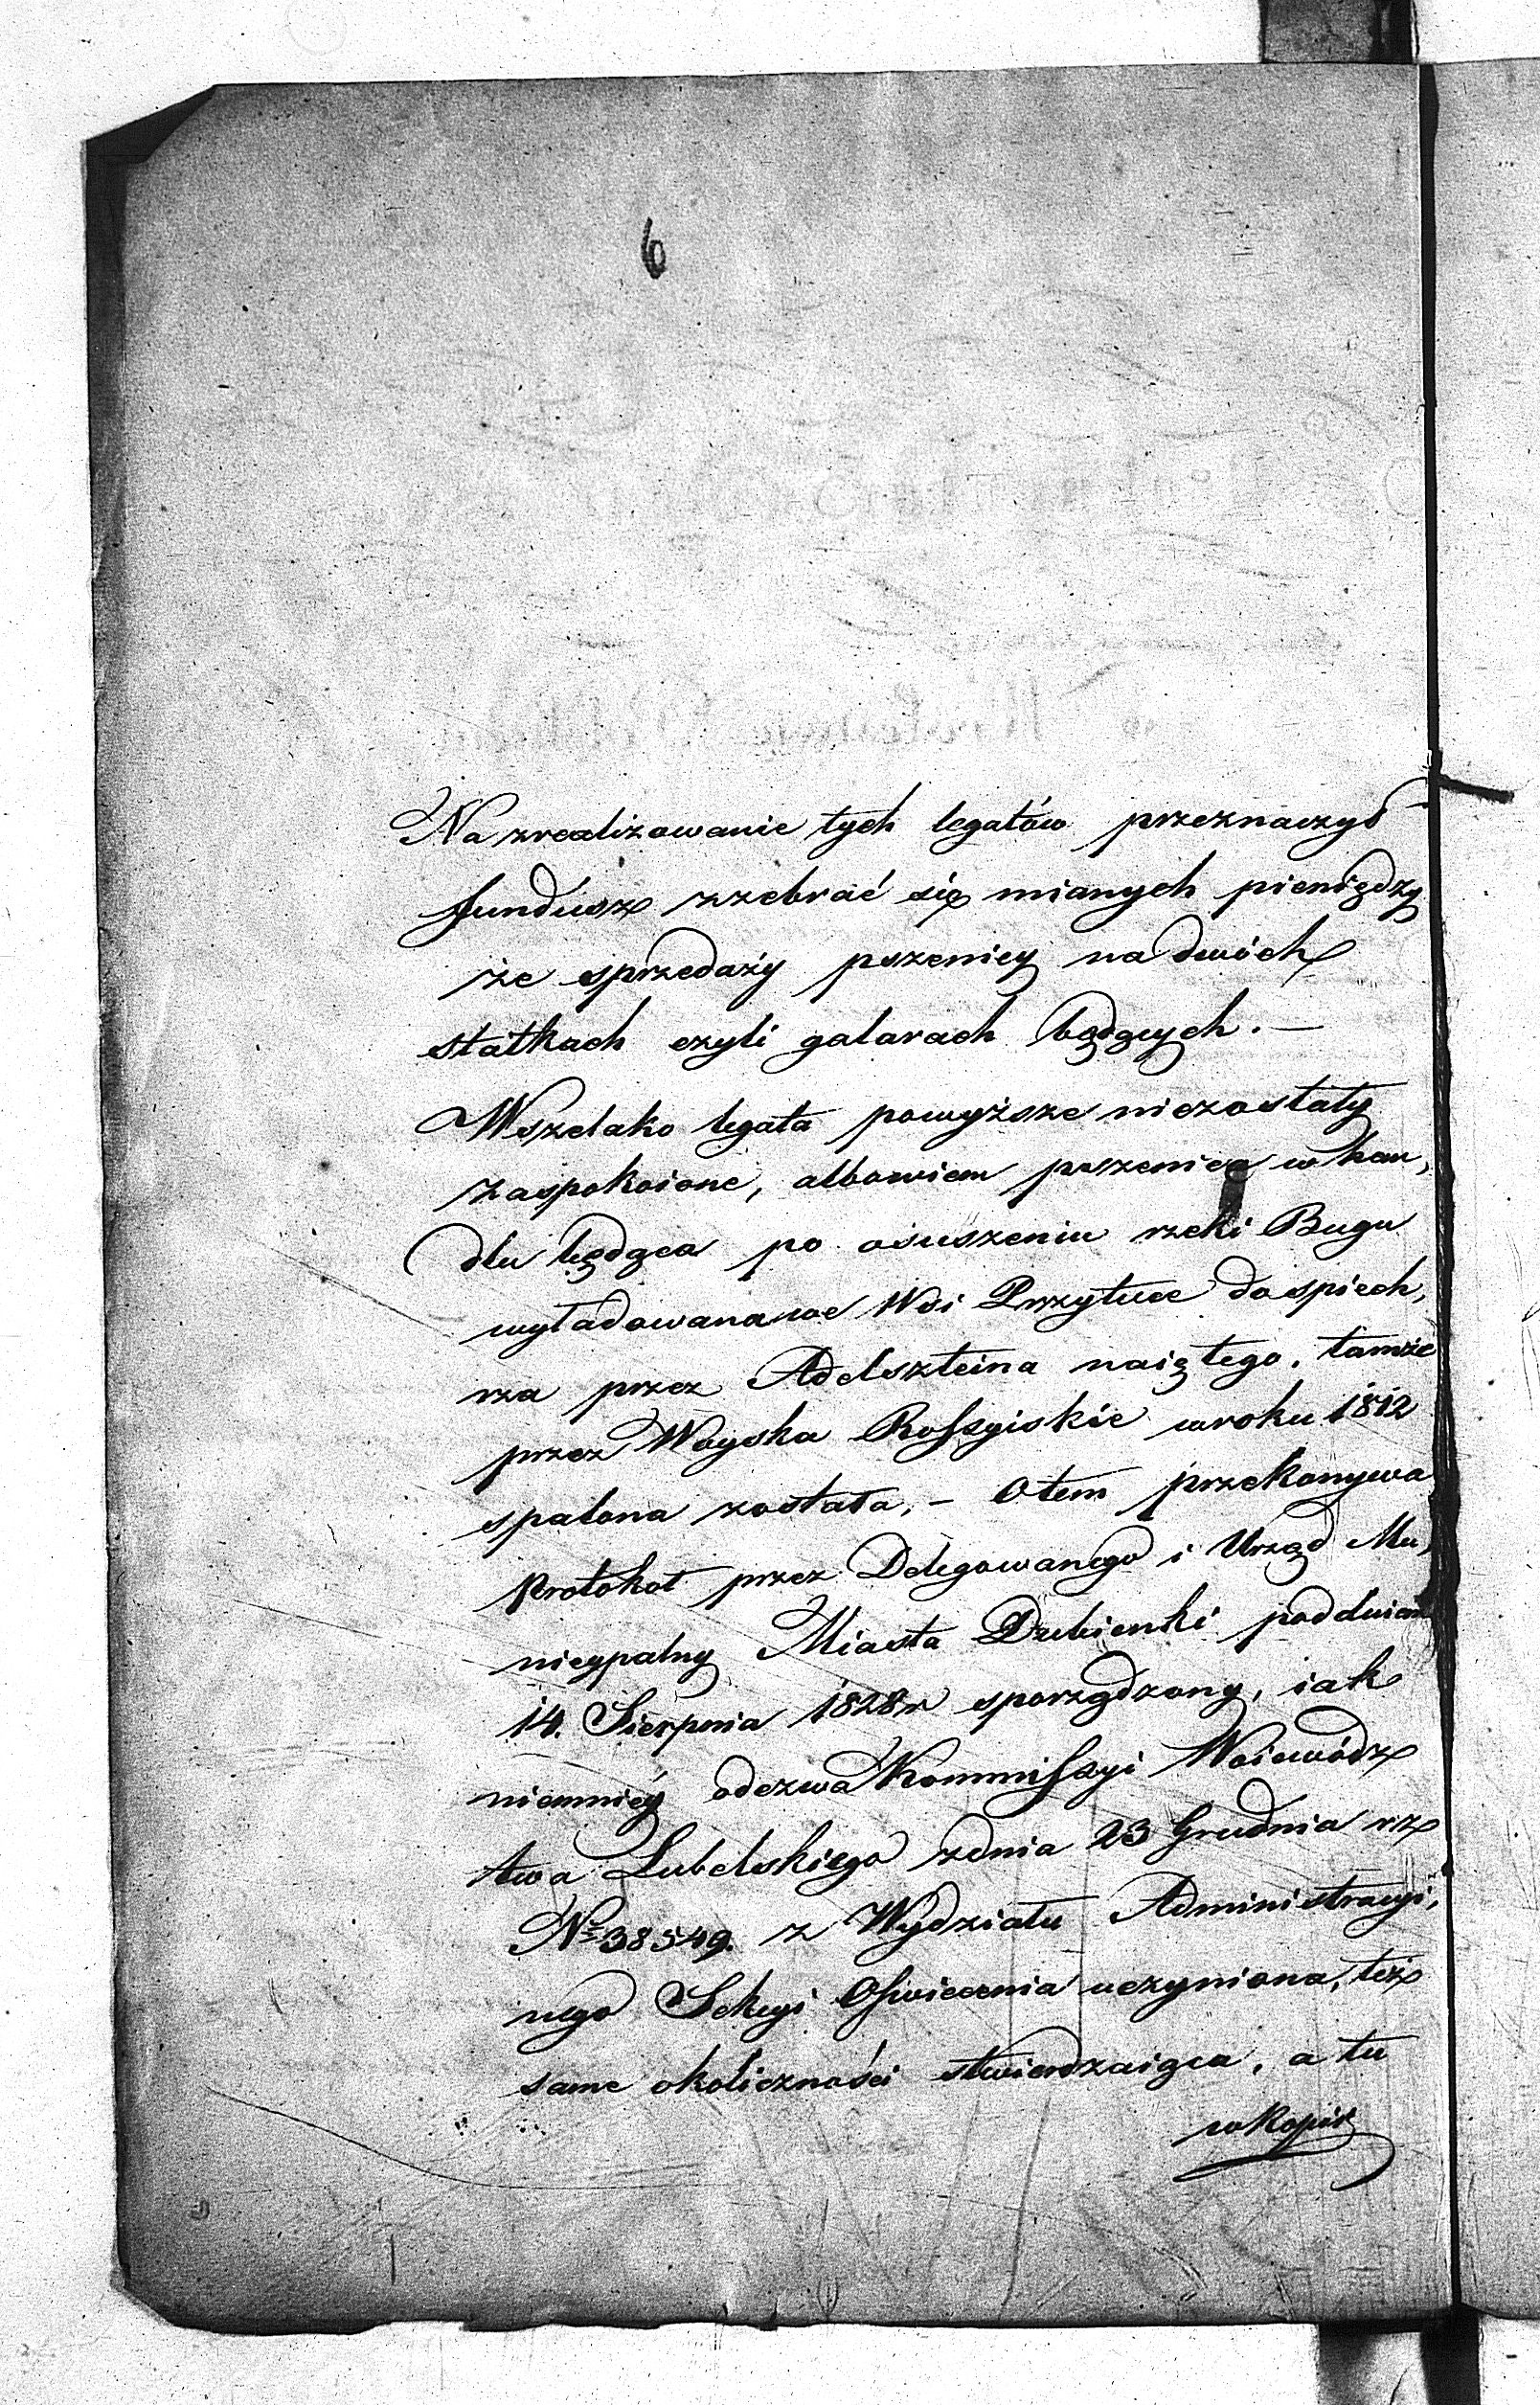 6
Na zrealizowanie tych legatów przeznaczył
fundusz zzebrać się mianych pieniędzy
ze sprzedaży pszenicy na dwóch
statkach czyli galarach będących. —
Wszelako legata powyższe niezostały
zaspokoione, albowiem pszenica w han,
dlu będąca po osuszeniu rzeki Bugu
wyładowana we Wsi Przytuce do spich,
rza przez Adelszteina naiętego, tamże
przez Woyska Rossyiskie w roku 1812
spalona została, — O tem przekonywa
Protokół przez Delegowanego i Urząd Mu,
nicypalny Miasta Dubienki pod dniem
14. Sierpnia 1828 r sporządzony, iak
niemniéy odezwa Kommissyi Woiewódz
twa Lubelskiego z dnia 23 Grudnia rz
No 38549. z Wydziału Administracyi,
nego Sekcyi Oświecenia uczyniona, też
same okoliczności stwierdzaiąca, a tu
w Kopii